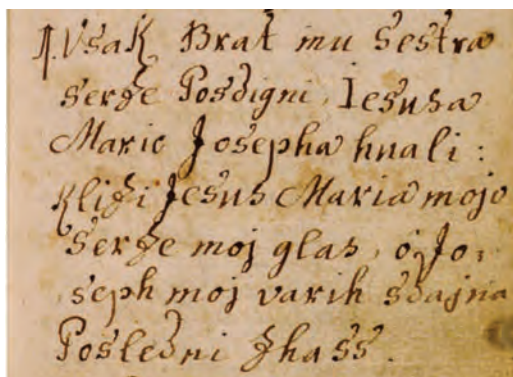 1. Vsak Brat inu Sestra
Serze Posdigni, Iesusa
Marie Josepha hnali:
Klizi Jesus Maria moje
Serze moj glas, o Jo,
seph moj varih sdajna
Posledni zhass.